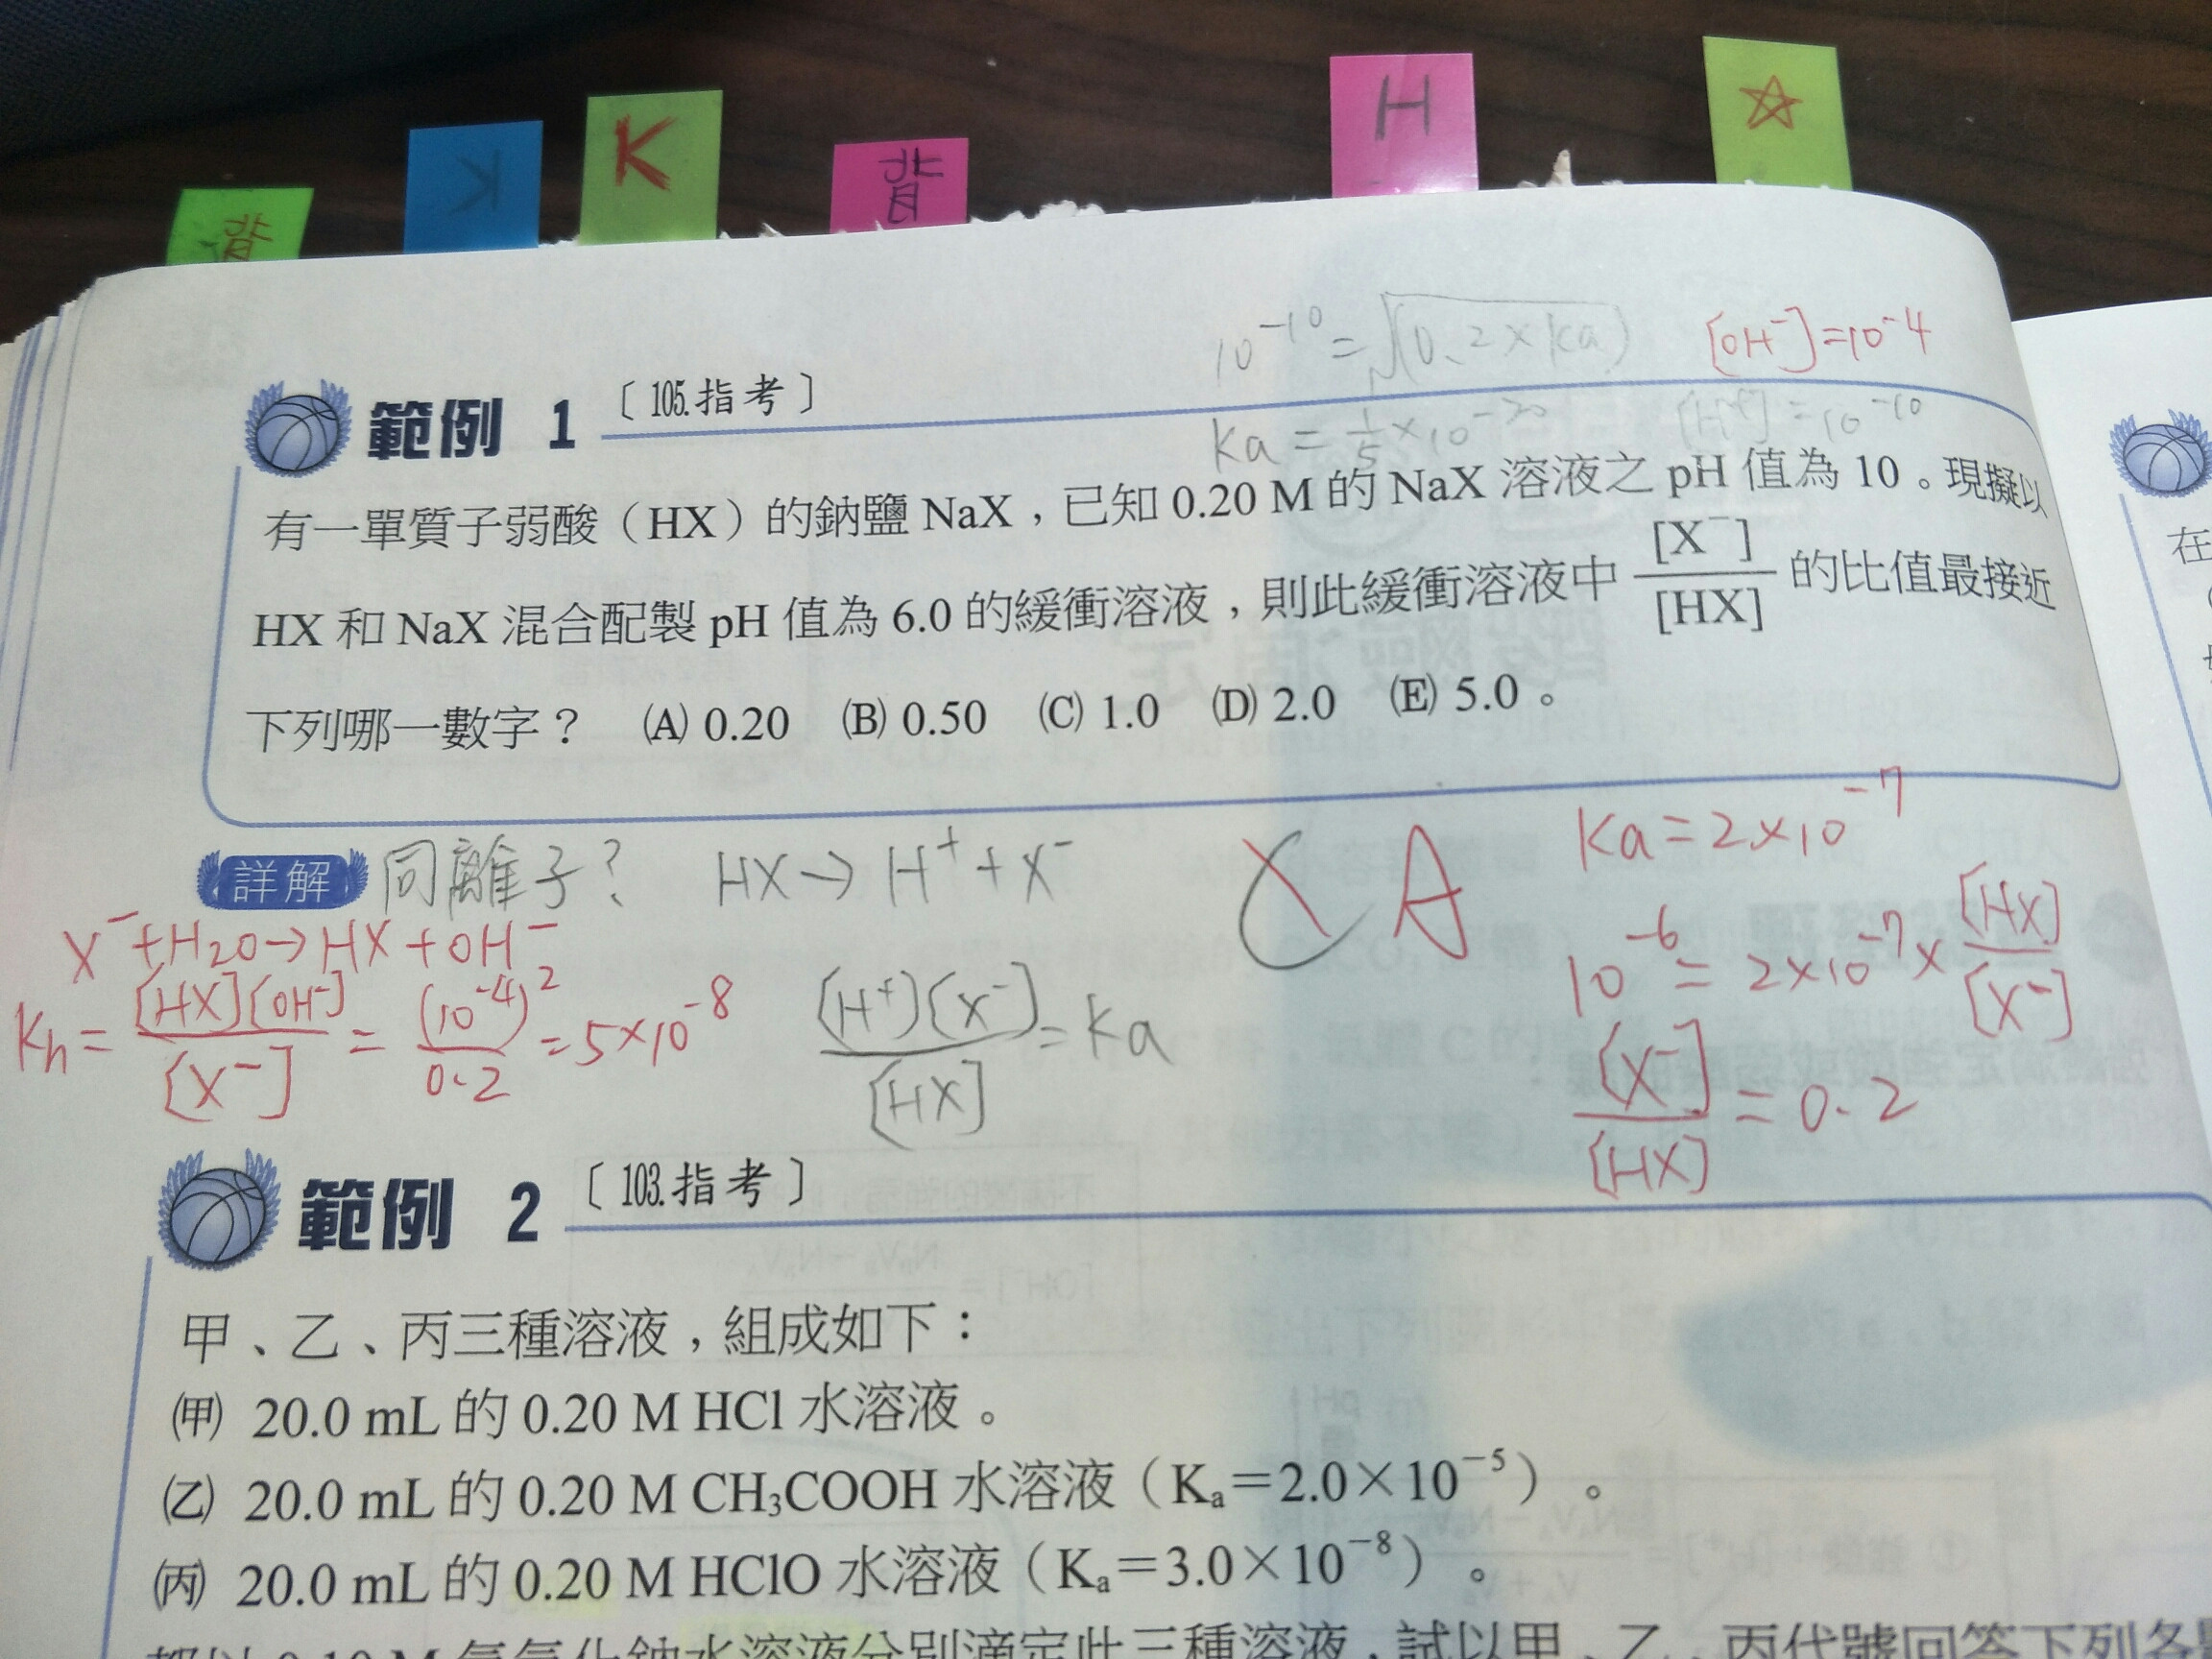 背
K
K
背
H
10⁻¹⁰ = √(0.2×ka)
[OH⁻]=10⁻⁴
範例 1 〔105.指考〕
ka = 1/5 ×10⁻²⁰
[H⁺] = 10⁻¹⁰
有一單質子弱酸（HX）的鈉鹽 NaX，已知 0.20 M 的 NaX 溶液之 pH 值為 10。現擬以
HX 和 NaX 混合配製 pH 值為 6.0 的緩衝溶液，則此緩衝溶液中 [X⁻]/[HX] 的比值最接近
下列哪一數字？ (A) 0.20 (B) 0.50 (C) 1.0 (D) 2.0 (E) 5.0。
詳解 同離子? HX→ H⁺+X⁻
C A
Ka=2×10⁻⁷
X⁻+H2O→HX+OH⁻
Kh= [HX][OH⁻]/[X⁻] = (10⁻⁴)²/0.2 =5×10⁻⁸
[H⁺][X⁻]/[HX] = ka
10⁻⁶= 2×10⁻⁷× [HX]/[X⁻]
[X⁻]/[HX] = 0.2
範例 2 〔103.指考〕
甲、乙、丙三種溶液，組成如下：
(甲) 20.0 mL 的 0.20 M HCl 水溶液。
(乙) 20.0 mL 的 0.20 M CH₃COOH 水溶液（Kₐ＝2.0×10⁻⁵）。
(丙) 20.0 mL 的 0.20 M HClO 水溶液（Kₐ＝3.0×10⁻⁸）。
都以 0.10 M 氫氧化鈉水溶液分別滴定此三種溶液，試以甲、乙、丙代號回答下列各
在